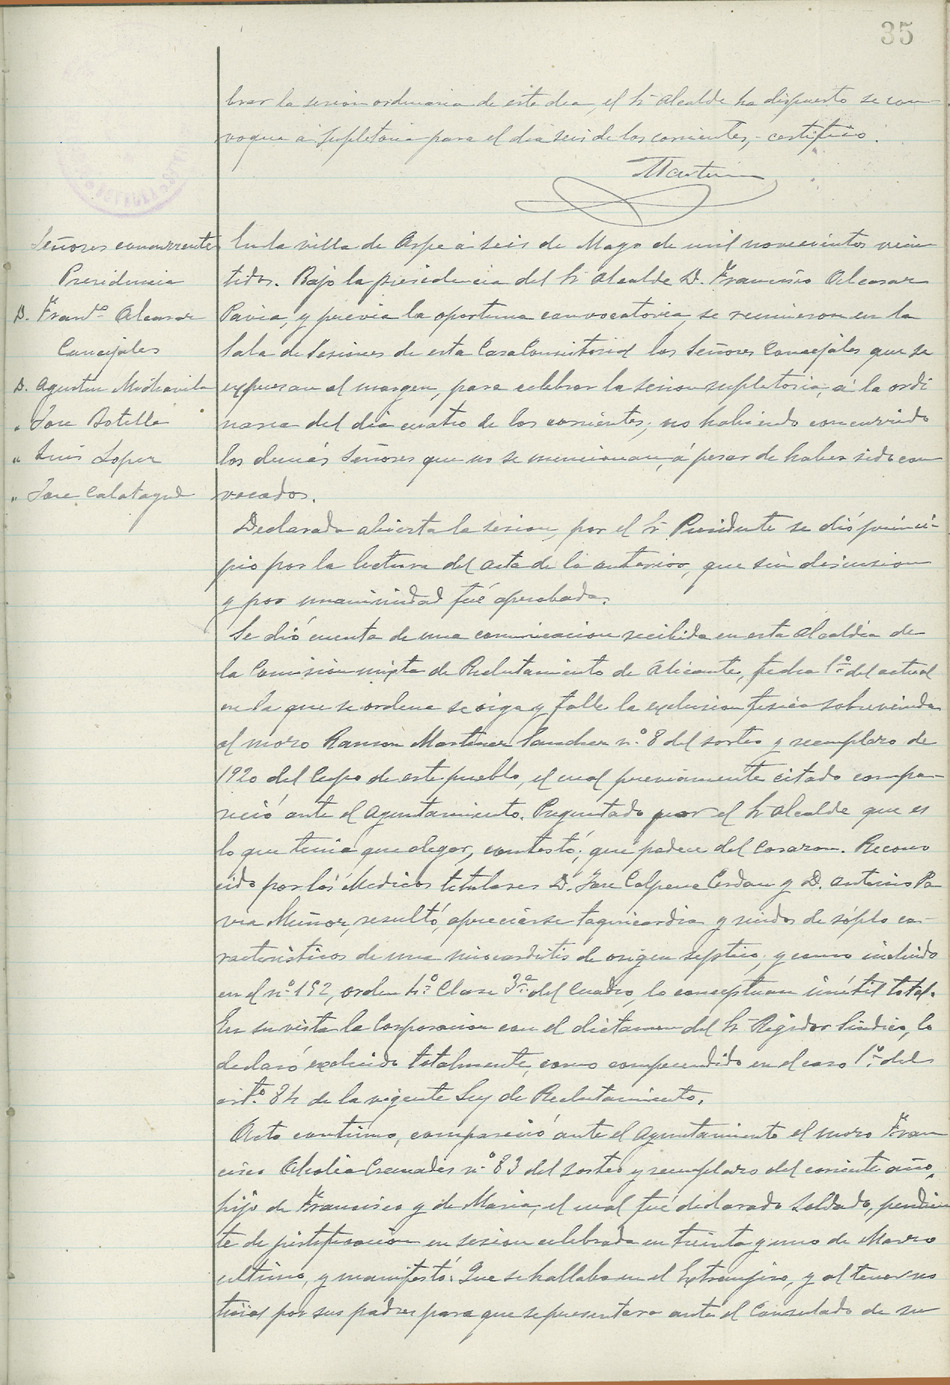 35
brar la sesion ordinaria de este dia, el Sr Alcalde ha dispuesto se con-
voque á supletoria para el dia seis de los corrientes, certifico.
Señores concurrentes
Presidencia
D. Franco Alcaraz
Concejales
D. Agustin
" Jose Botella
" Luis Lopez
" Jose Calatayud
En la villa de Aspe á seis de Mayo de mil novecientos vein
tidos. Bajo la presidencia del Sr Alcalde D. Francisco Alcaraz
Pavia, y previa la oportuna convocatoria, se reunieron en la
Sala de Sesiones de esta Casa Consistorial los Señores Concejales que se
expresan al margen, para celebrar la sesion supletoria, á la ordi
naria del dia cuatro de los corrientes, no habiendo concurrido
los demás Señores que no se mencionan, á pesar de haber sido con
vocados.
Declarada abierta la sesion, por el Sr Presidente se dió princi-
pio por la lectura del acta de la anterior, que sin discusion
y por unanimidad fué aprobada.
Se dió cuenta de una comunicacion recibida en esta Alcaldia de
la Comision mixta de Reclutamiento de Alicante, fecha 1º del actual
en la que se ordena se oiga y falle la exclusion fisica sobrevenida
al mozo Ramon Martinez Sanchez nº 8 del sorteo y reemplazo de
1920 del Cupo de este pueblo, el cual previamente citado compa-
reció ante el Ayuntamiento. Preguntado por el Sr Alcalde que es
lo que tenia que alegar, contestó; que padece del corazon. Recono
cido por los Médicos titulares D. Jose Calpena Cerdan y D. Antonio Pa
via Muñoz, resultó, apreciarse taquicardia y ruidos de sóplo ca-
racteristicos de una miocarditis de origen septico, y como incluido
en el nº 192, orden 4º Clase 3ª del Cuadro, lo conceptuan inútil total.
En su vista la Corporacion con el dictamen del Sr Regidor Sindico, lo
declaró excluido totalmente, como comprendido en el caso 1º del
artº 84 de la vigente Ley de Reclutamiento.
Acto continuo, compareció ante el Ayuntamiento el mozo Fran
cisco Cremades nº 83 del sorteo y reemplazo del corriente año,
hijo de Francisco y de Maria, el cual fué declarado Soldado, pendien
te de justificacion en sesion celebrada en treinta y uno de Marzo
ultimo, y manifestó: Que se hallaba en el Extranjero, y al tener no
ticias por sus padres para que se presentara ante el Consulado de su